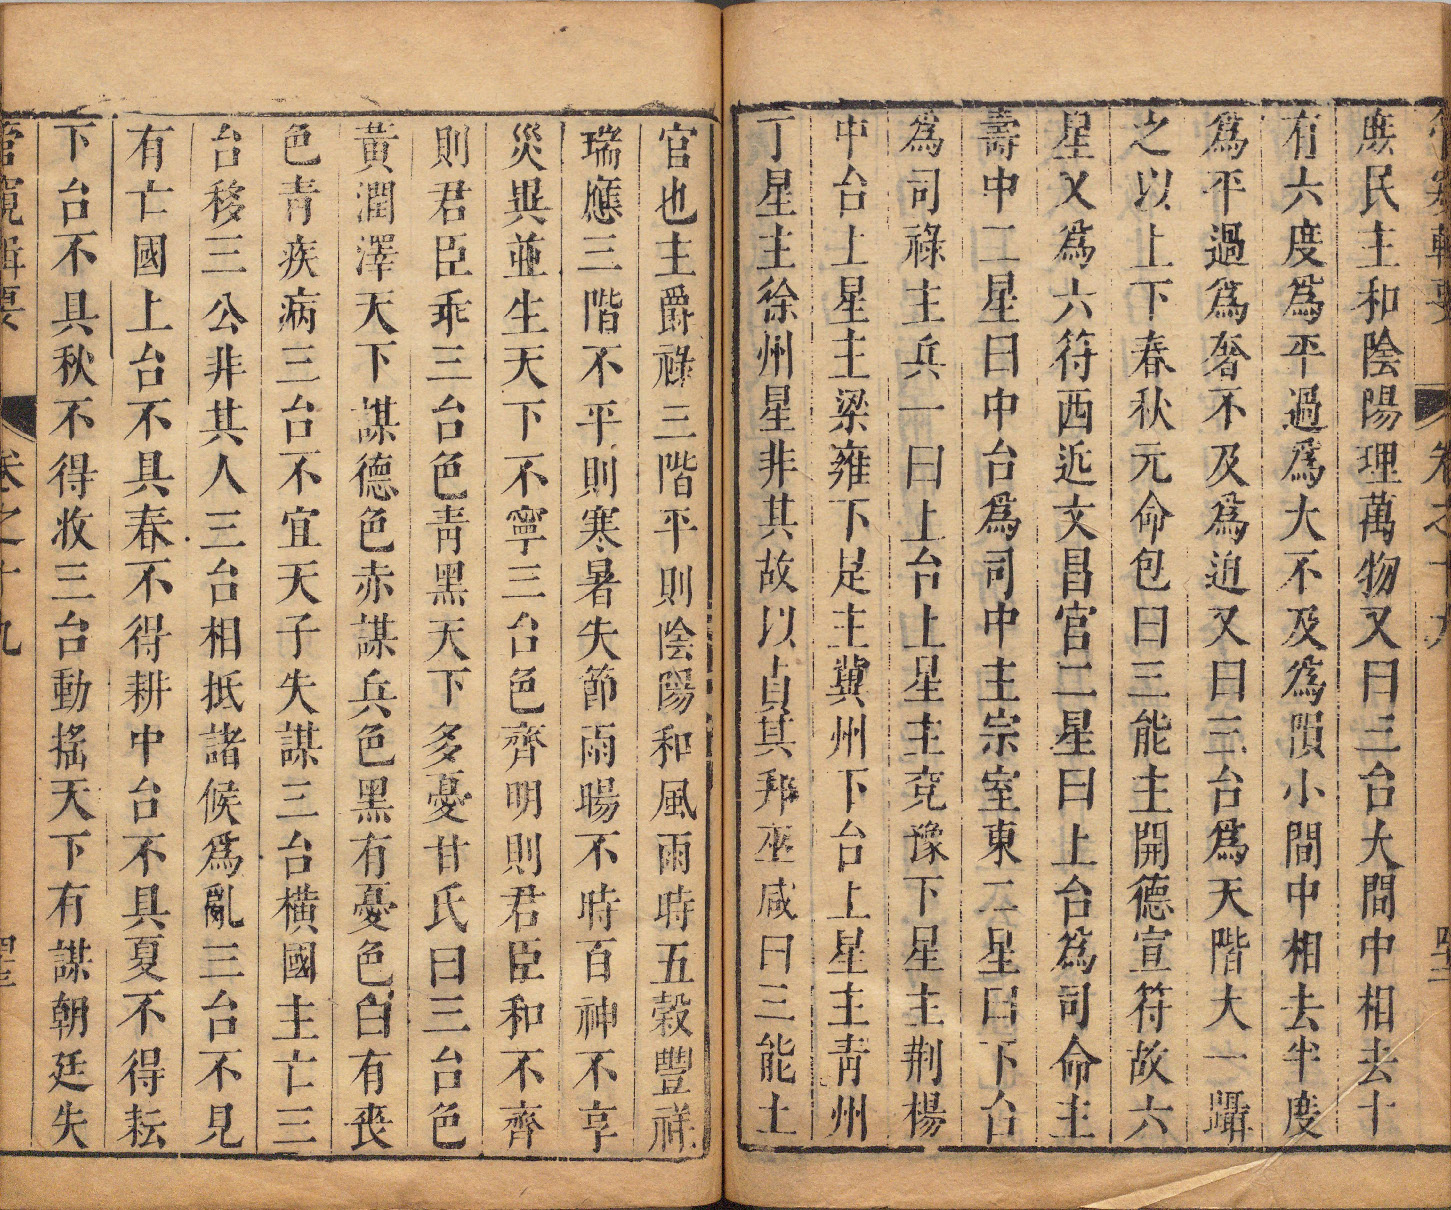 管窺輯要 卷之十九 四十二
庶民主和陰陽理萬物又曰三台大間中相去十
有六度爲平過爲大不及爲隕小間中相去半度
爲平過爲奢不及爲迫又曰三台爲天階大一躡
之以上下春秋元命包曰三能主開德宣符故六
星又爲六符西近文昌宮二星曰上台爲司命主
壽中二星曰中台爲司中主宗室東二星曰下台
爲司祿主兵一曰上台上星主兖豫下星主荆楊
中台上星主梁雍下足主冀州下台上星主青州
丁星主徐州星非其故以貞其邦巫咸曰三能土
官也主爵祿三階平則陰陽和風雨時五穀豐祥
瑞應三階不平則寒暑失節雨暘不時百神不享
災異並生天下不寧三台色齊明則君臣和不齊
則君臣乖三台色青黑天下多憂甘氏曰三台色
黃潤澤天下謀德色赤謀兵色黑有憂色白有喪
色青疾病三台不宜天子失謀三台橫國主亡三
台移三公非其人三台相抵諸候爲亂三台不見
有亡國上台不具春不得耕中台不具夏不得耘
下台不具秋不得收三台動搖天下有謀朝廷失
管窺輯要 卷之十九 四十三